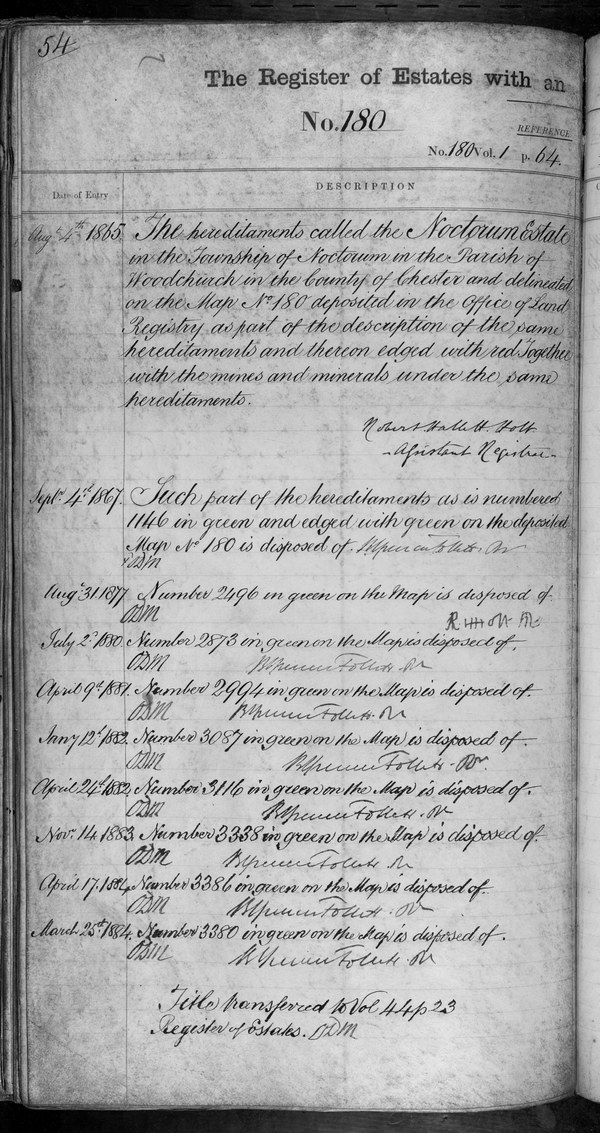 54
The Register of Estates with an
No. 180
REFERENCE
No. 180 Vol. 1 p. 64.
Date of Entry.
DESCRIPTION
Augt. 4th 1865. The hereditaments called the Noctorum Estate
in the Township of Noctorum in the Parish of
Woodchurch in the County of Chester and delineated
on the Map No. 180 deposited in the Office of Land
Registry as part of the description of the same
hereditaments and thereon edged with red Together
with the mines and minerals under the same
hereditaments.
Robert Hallett Holt
Assistant Registrar
Septr. 4th 1867. Such part of the hereditaments as is numbered
1146 in green and edged with green on the deposited
Map No. 180 is disposed of. B Spencer Follett
ODM
Augt. 31 1877 Number 2496 in green on the Map is disposed of.
ODM
July 2d. 1880. Number 2873 in green on the Map is disposed of.
ODM BSpencer Follett
April 9th 1881. Number 2994 in green on the Map is disposed of.
ODM BSpencer Follett
Jany 12th 1882. Number 3087 in green on the Map is disposed of.
ODM BSpencer Follett
April 24th 1882. Number 3116 in green on the Map is disposed of.
ODM BSpencer Follett
Novr. 14 1883. Number 3338 in green on the Map is disposed of.
ODM BSpencer Follett
April 17. 1884. Number 3386 in green on the Map is disposed of.
ODM BSpencer Follett
March 25th 1884. Number 3380 in green on the Map is disposed of.
ODM BSpencer Follett
Title transferred to Vol 44 p 23
Register of Estates. ODM